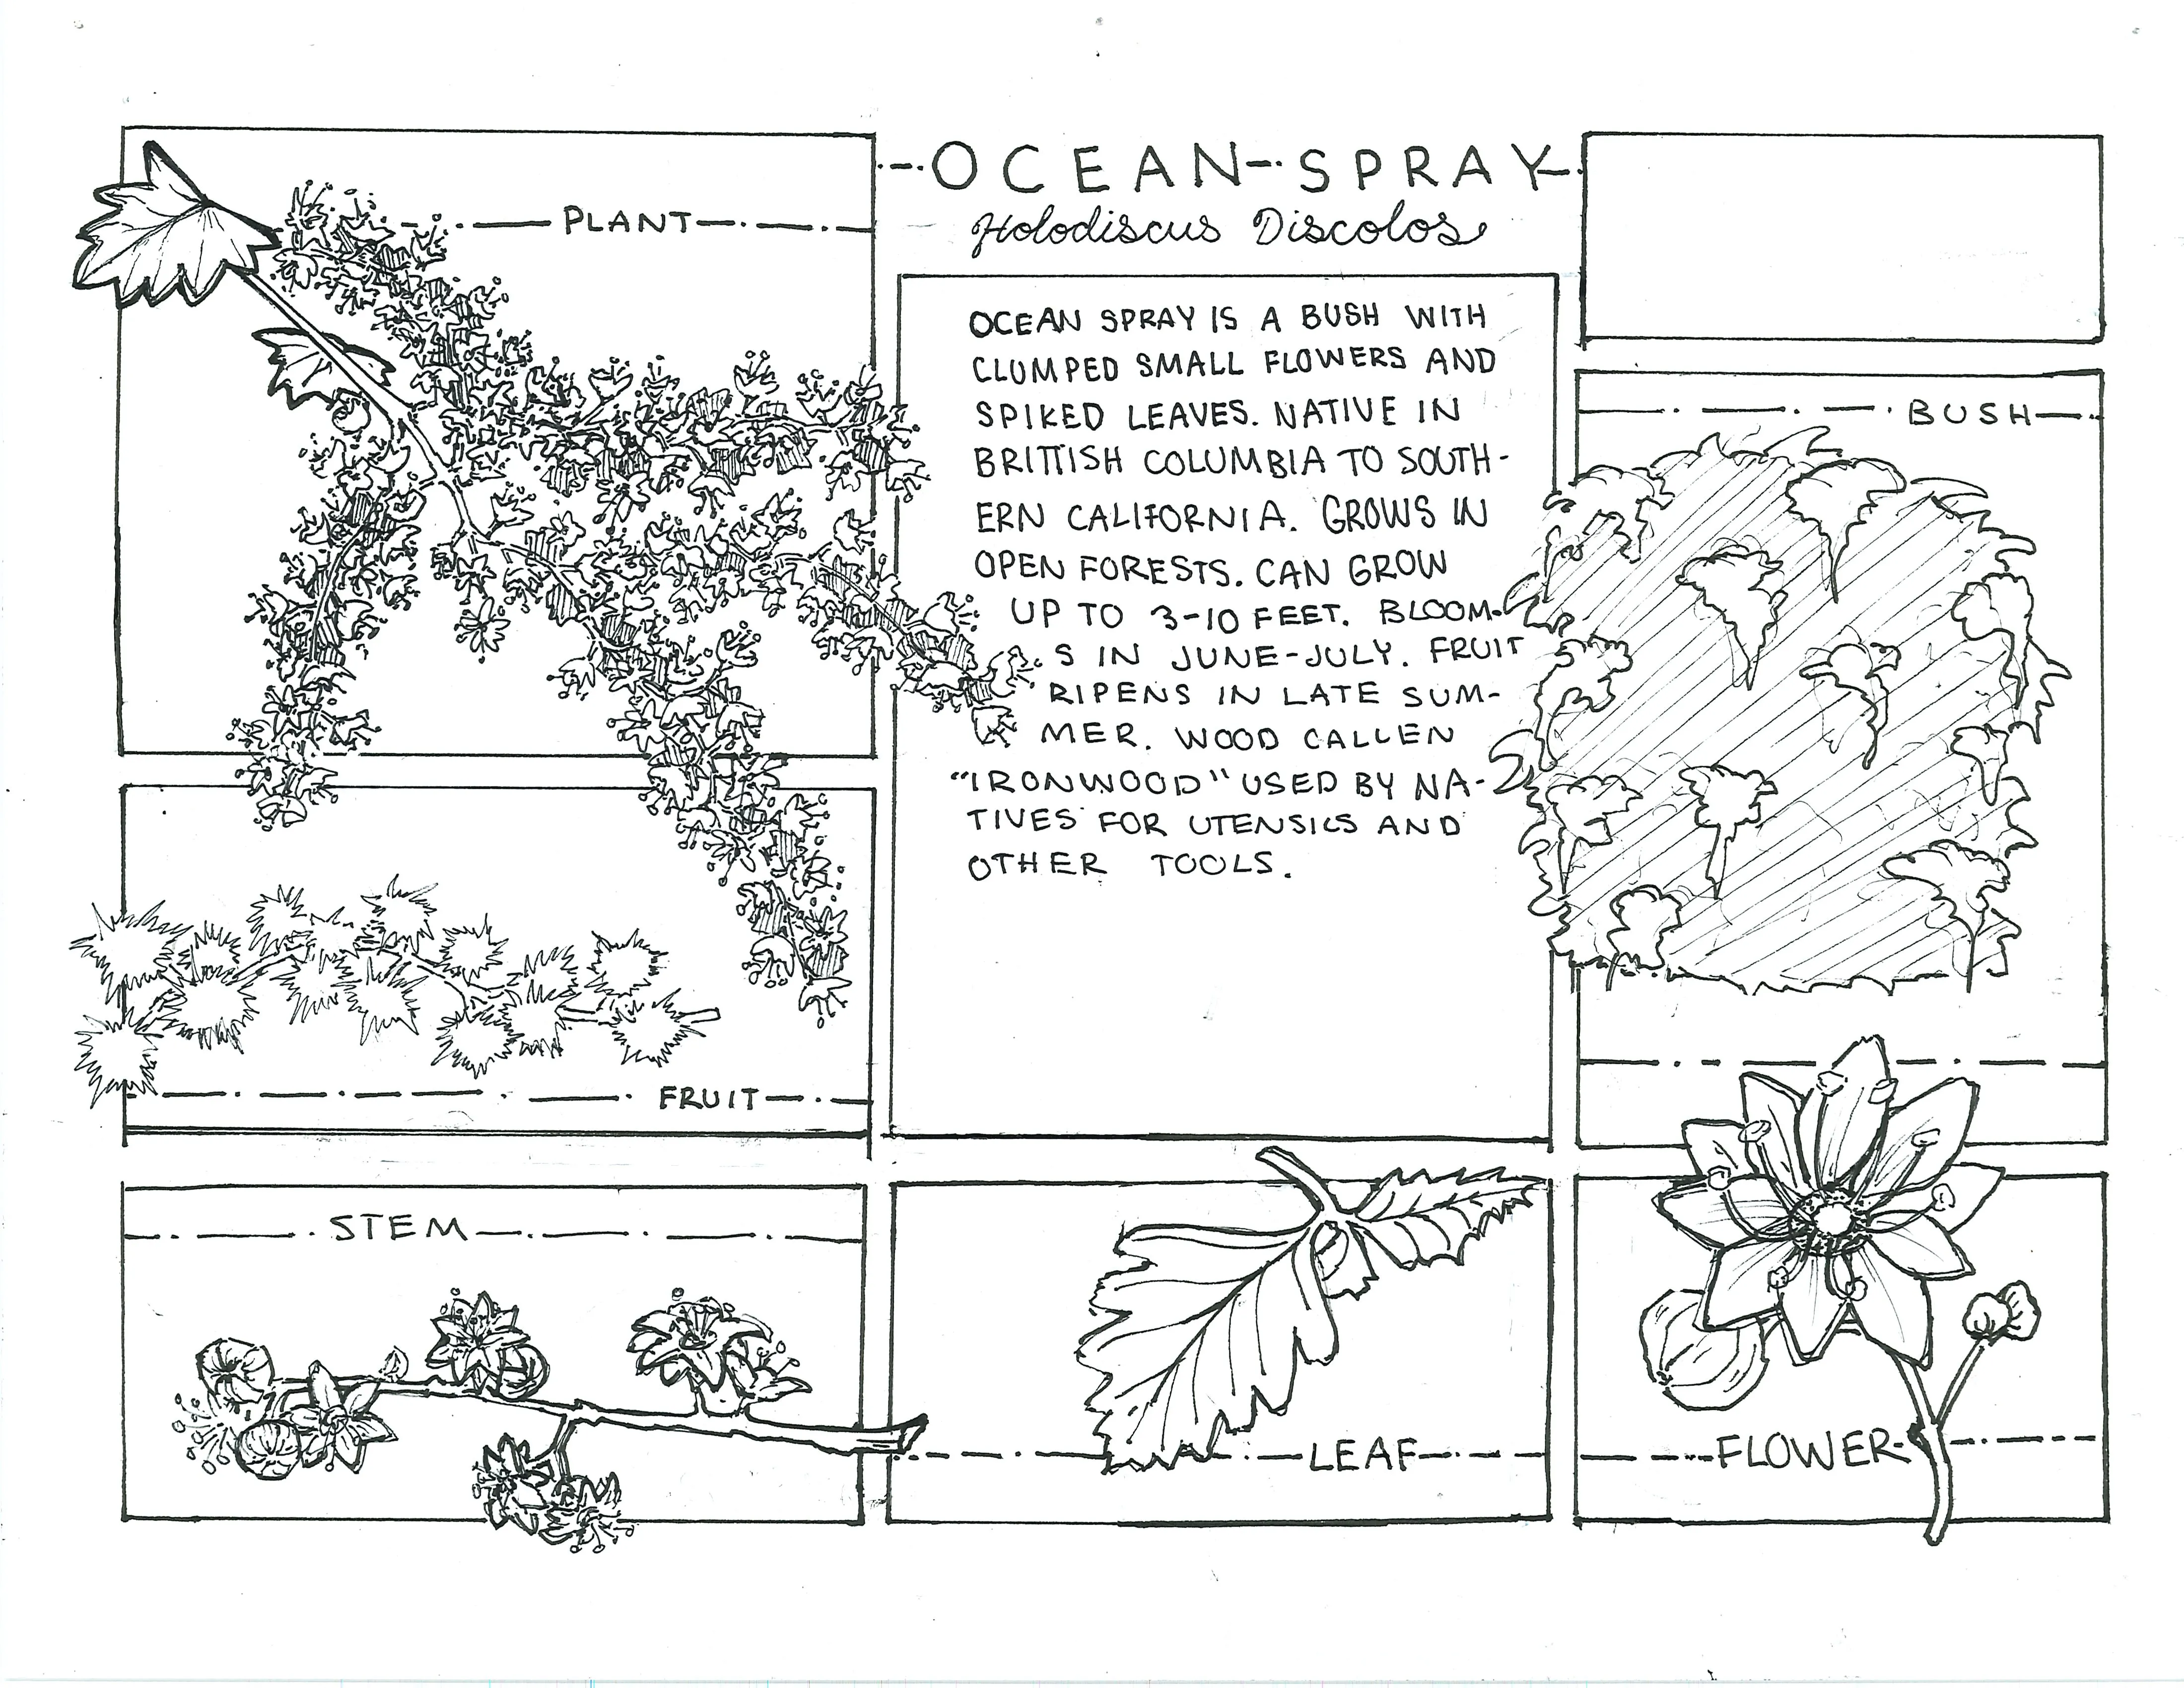 OCEAN SPRAY
Holodiscus Discolos
PLANT
OCEAN SPRAY IS A BUSH WITH
CLUMPED SMALL FLOWERS AND
SPIKED LEAVES. NATIVE IN
BRITTISH COLUMBIA TO SOUTH-
ERN CALIFORNIA. GROWS IN
OPEN FORESTS. CAN GROW
UP TO 3-10 FEET. BLOOM-
S IN JUNE-JULY. FRUIT
RIPENS IN LATE SUM-
MER. WOOD CALLEN
"IRONWOOD" USED BY NA-
TIVES FOR UTENSILS AND
OTHER TOOLS.
BUSH
FRUIT
STEM
LEAF
FLOWER